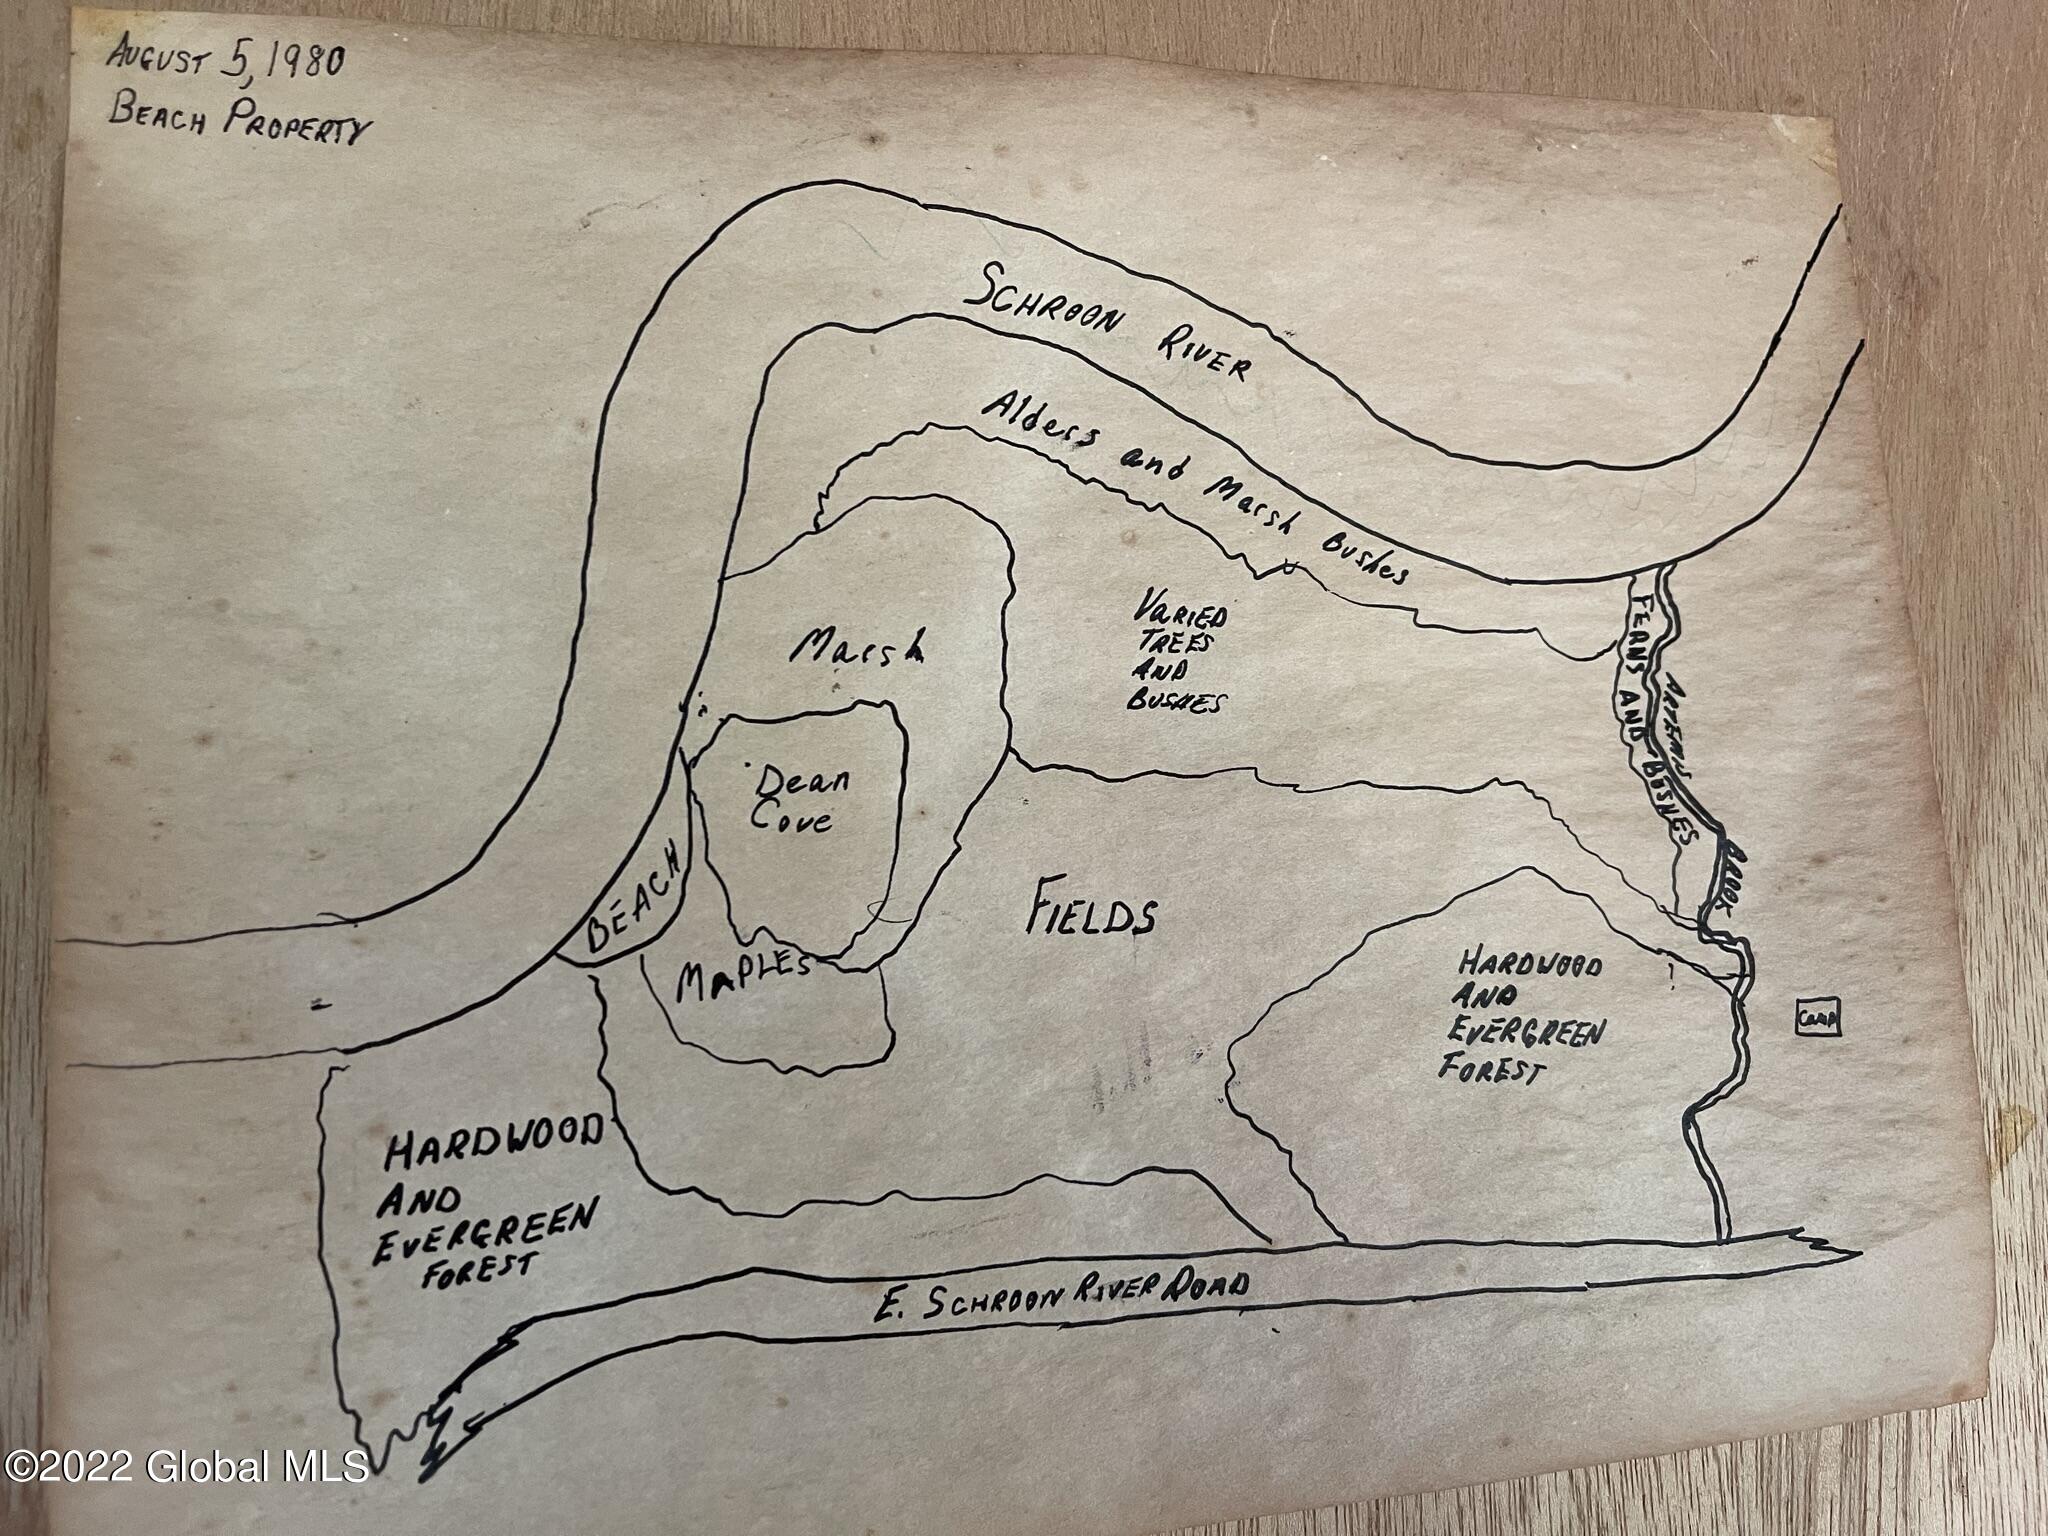 AUGUST 5, 1980
BEACH PROPERTY
SCHROON RIVER
Alders and Marsh Bushes
VARIED
TREES
AND
BUSHES
FERNS AND BUSHES
ARTEMIS BROOK
Marsh
Dean
Cove
BEACH
MAPLES
FIELDS
HARDWOOD
AND
EVERGREEN
FOREST
Camp
HARDWOOD
AND
EVERGREEN
FOREST
E. SCHROON RIVER ROAD
©2022 Global MLS